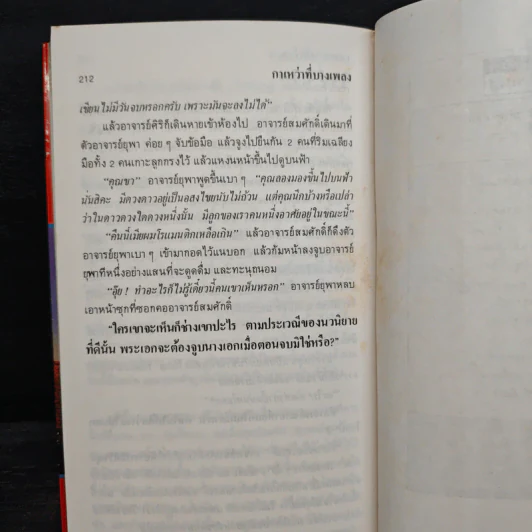 212
กาเหว่าที่บางเพลง
เขียนไม่มีวันจบหรอกครับ เพราะมันจะลงไม่ได้”
แล้วอาจารย์ศิริก็เดินหายเข้าห้องไป อาจารย์สมศักดิ์เดินมาที่
ตัวอาจารย์ยุพา ค่อย ๆ จับข้อมือ แล้วจูงไปยืนกัน 2 คนที่ริมเฉลียง
มือทั้ง 2 คนเกาะลูกกรงไว้ แล้วแหงนหน้าขึ้นไปดูบนฟ้า
“คุณขา” อาจารย์ยุพาพูดขึ้นเบา ๆ “คุณลองมองขึ้นไปบนฟ้า
นั่นสิคะ มีดวงดาวอยู่เป็นอสงไขยนับไม่ถ้วน แต่คุณนึกบ้างหรือเปล่า
ว่าในดาวดวงใดดวงหนึ่งนั้น มีลูกของเราคนหนึ่งอาศัยอยู่ในขณะนี้”
“คืนนี้เมียผมโรแมนติกเหลือเกิน” แล้วอาจารย์สมศักดิ์ก็ดึงตัว
อาจารย์ยุพาเบา ๆ เข้ามากอดไว้แนบอก แล้วก้มหน้าลงจูบอาจารย์
ยุพาทีหนึ่งอย่างแสนที่จะดูดดื่ม และทะนุถนอม
“อุ๊ย ! ทำอะไรก็ไม่รู้เดี๋ยวนี้คนเขาเห็นหรอก” อาจารย์ยุพาหลบ
เอาหน้าซุกที่ซอกคออาจารย์สมศักดิ์
“ใครเขาจะเห็นก็ช่างเขาปะไร ตามประเวณีของนวนิยาย
ที่ดีนั้น พระเอกจะต้องจูบนางเอกเมื่อตอนจบมิใช่หรือ?”